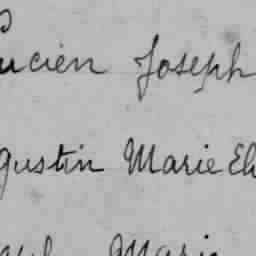 ucien Joseph
gustin Marie El
Marie